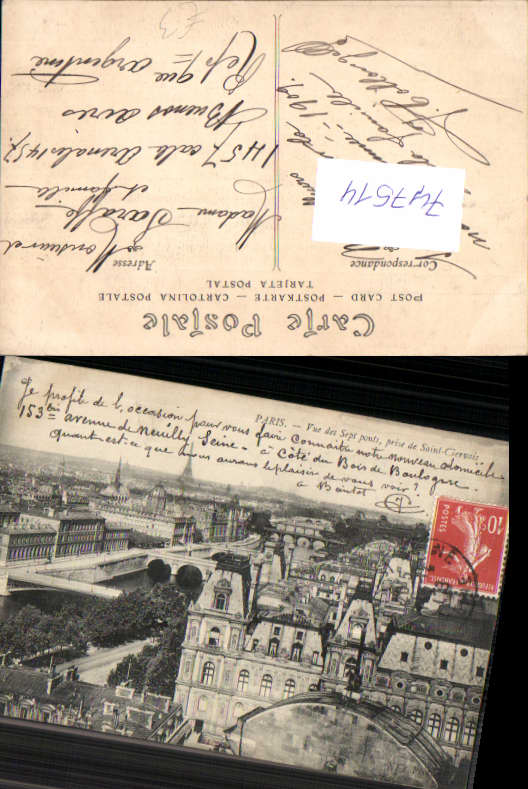 Carte Postale
POST CARD — POSTKARTE — CARTOLINA POSTALE
TARJETA POSTAL
Correspondance
Adresse
1909
Monsieur et
Madame
et famille
1457 calle Arenales 1457
Buenos aires
Rep que argentine
747514
PARIS. — Vue des Sept ponts, prise de Saint-Gervais
Je profite de l'occasion pour vous faire connaitre notre nouveau domicile
153 bis avenue de Neuilly Seine - à Côté du Bois de Boulogne.
Quant est-ce que nous aurons le plaisir de vous voir ?
à Bientot
10c
POSTES
REPUBLIQUE FRANÇAISE